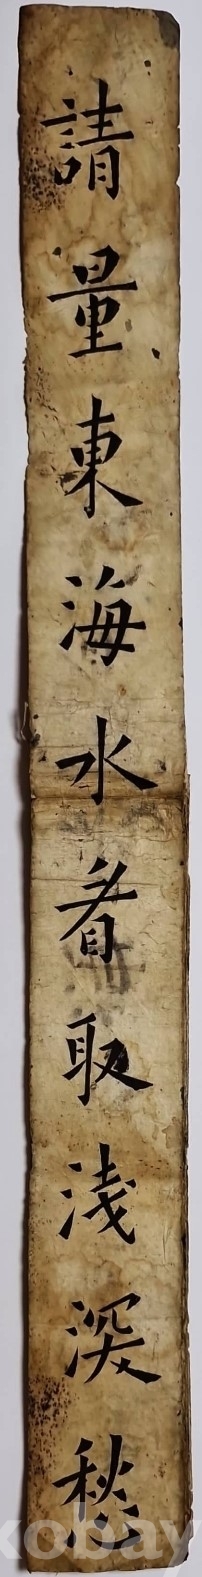 請量東海水看取淺深愁
kobay